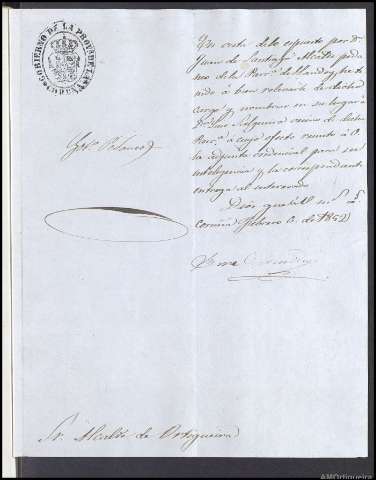 GOBIERNO DE LA PROVª DE LA CORUÑA
En vista de lo espuesto por Dn
Juan de Santiago Alcalde peda
neo de la Parrª de he te
nido á bien relevarle de dicho
cargo y nombrar en su lugar á
Dn José Salgueiro vecino de dicha
Parrª á cuyo efecto remito á V.
la adjunta credencial para su
inteligencia y la correspondiente
entrega al interesado.
Dios guarde á V. ms. as.
Coruña Febrero 6 de 1852
Sr. Alcalde de Ortigueira
AMOrtigueira